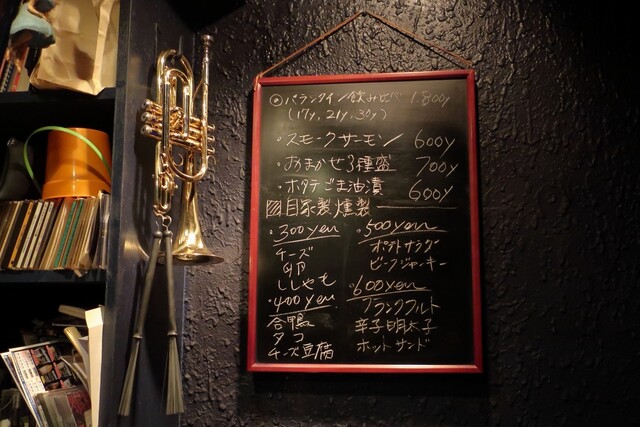 ◎バランタイン飲み比べ 1.800y
(17y, 21y, 30y)
・スモークサーモン 600y
・おまかせ3種盛 700y
・ホタテごま油漬 600y
自家製燻製
・300yen
チーズ
卵
ししゃも
・400yen
合鴨
タコ
チーズ豆腐
・500yen
ポテトサラダ
ビーフジャーキー
・600yen
フランクフルト
辛子明太子
ホットサンド